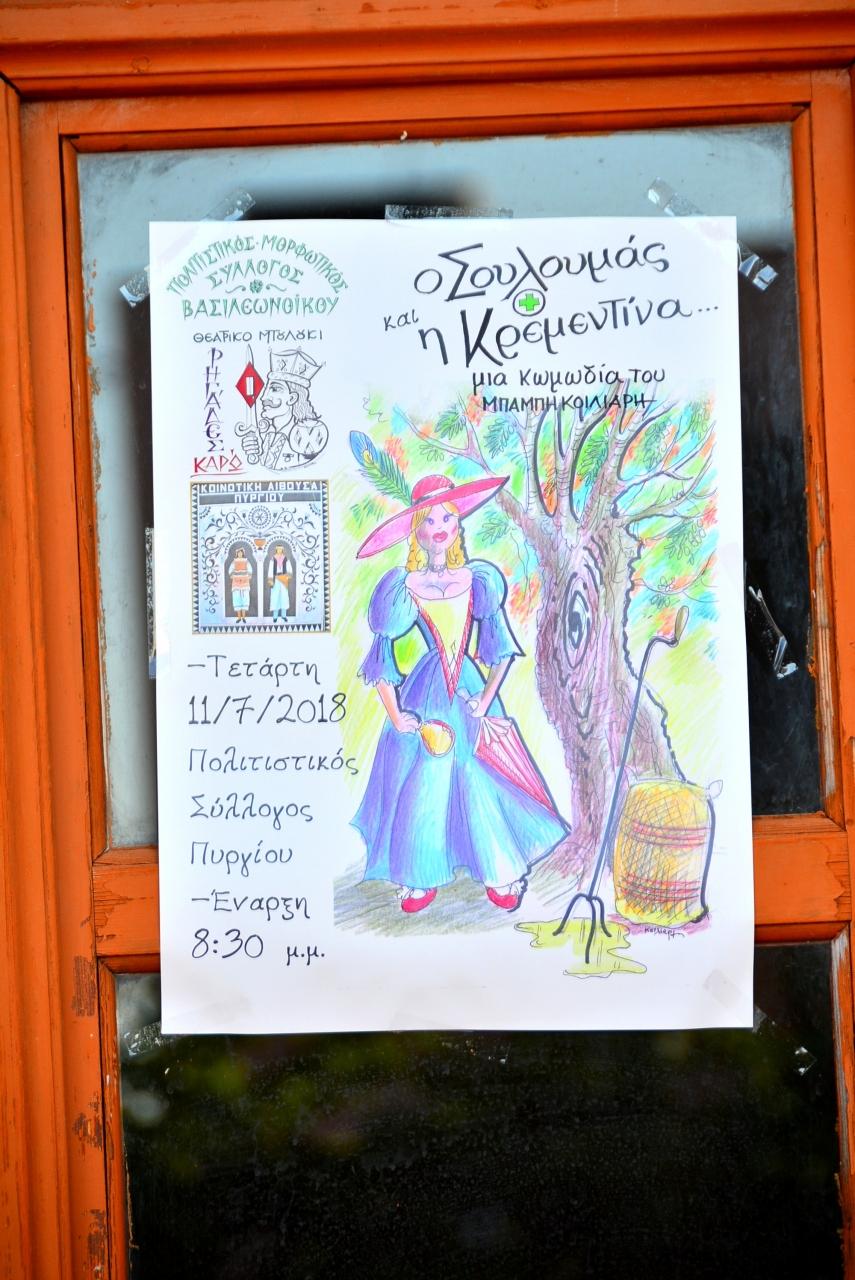 ΠΟΛΙΤΙΣΤΙΚΟΣ·ΜΟΡΦΩΤΙΚΟΣ
ΣΥΛΛΟΓΟΣ
ΒΑΣΙΛΕΩΝΟΙΚΟΥ
ΘΕΑΤΡΙΚΟ ΜΠΟΥΛΟΥΚΙ
ΡΗΓΑΔΕΣ
ΚΑΡΩ
ΚΟΙΝΟΤΙΚΗ ΑΙΘΟΥΣΑ
ΠΥΡΓΙΟΥ
ο Σουλουμάς
και η Κρεμεντίνα...
μια κωμωδία του
ΜΠΑΜΠΗ ΚΟΙΛΙΑΡΗ
-Τετάρτη
11/7/2018
Πολιτιστικός
Σύλλογος
Πυργίου
-Έναρξη
8:30 μ.μ.
Κοιλιάρη